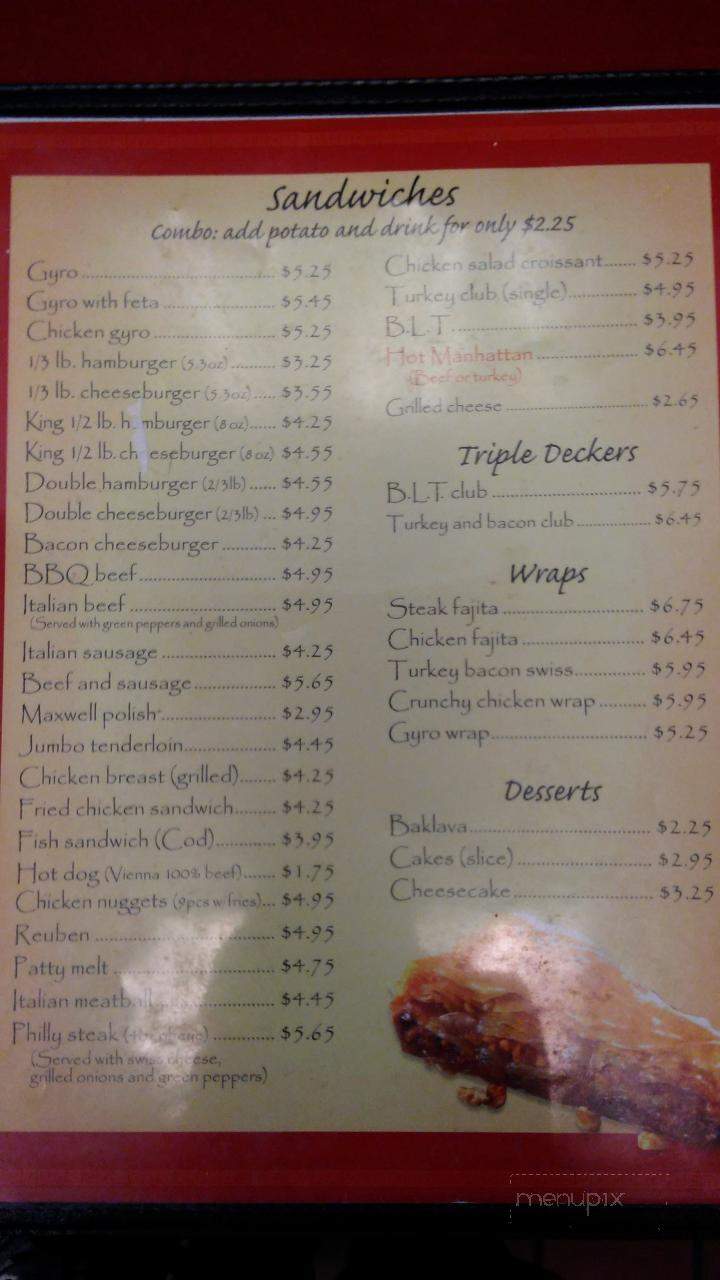 Sandwiches
Combo: add potato and drink for only $2.25
Gyro ........ $5.25
Gyro with feta ........ $5.45
Chicken gyro ........ $5.25
1/3 lb. hamburger (5.3oz) ........ $3.25
1/3 lb. cheeseburger (5.3oz) ........ $3.55
King 1/2 lb. hamburger (8oz) ........ $4.25
King 1/2 lb. cheeseburger (8oz) $4.55
Double hamburger (2/3lb) ........ $4.55
Double cheeseburger (2/3lb) ... $4.95
Bacon cheeseburger ........ $4.25
BBQ beef ........ $4.95
Italian beef ........ $4.95
(Served with green peppers and grilled onions)
Italian sausage ........ $4.25
Beef and sausage ........ $5.65
Maxwell polish ........ $2.95
Jumbo tenderloin ........ $4.45
Chicken breast (grilled) ........ $4.25
Fried chicken sandwich ........ $4.25
Fish sandwich (Cod) ........ $3.95
Hot dog (Vienna 100% beef) ........ $1.75
Chicken nuggets (9pcs w fries) ... $4.95
Reuben ........ $4.95
Patty melt ........ $4.75
Italian meatball ........ $4.45
Philly steak ........ $5.65
(Served with swiss cheese,
grilled onions and green peppers)
Chicken salad croissant ........ $5.25
Turkey club (single) ........ $4.95
B.L.T. ........ $3.95
Hot Manhattan ........ $6.45
(Beef or turkey)
Grilled cheese ........ $2.65
Triple Deckers
B.L.T. club ........ $5.75
Turkey and bacon club ........ $6.45
Wraps
Steak fajita ........ $6.75
Chicken fajita ........ $6.45
Turkey bacon swiss ........ $5.95
Crunchy chicken wrap ........ $5.95
Gyro wrap ........ $5.25
Desserts
Baklava ........ $2.25
Cakes (slice) ........ $2.95
Cheesecake ........ $3.25
menupix